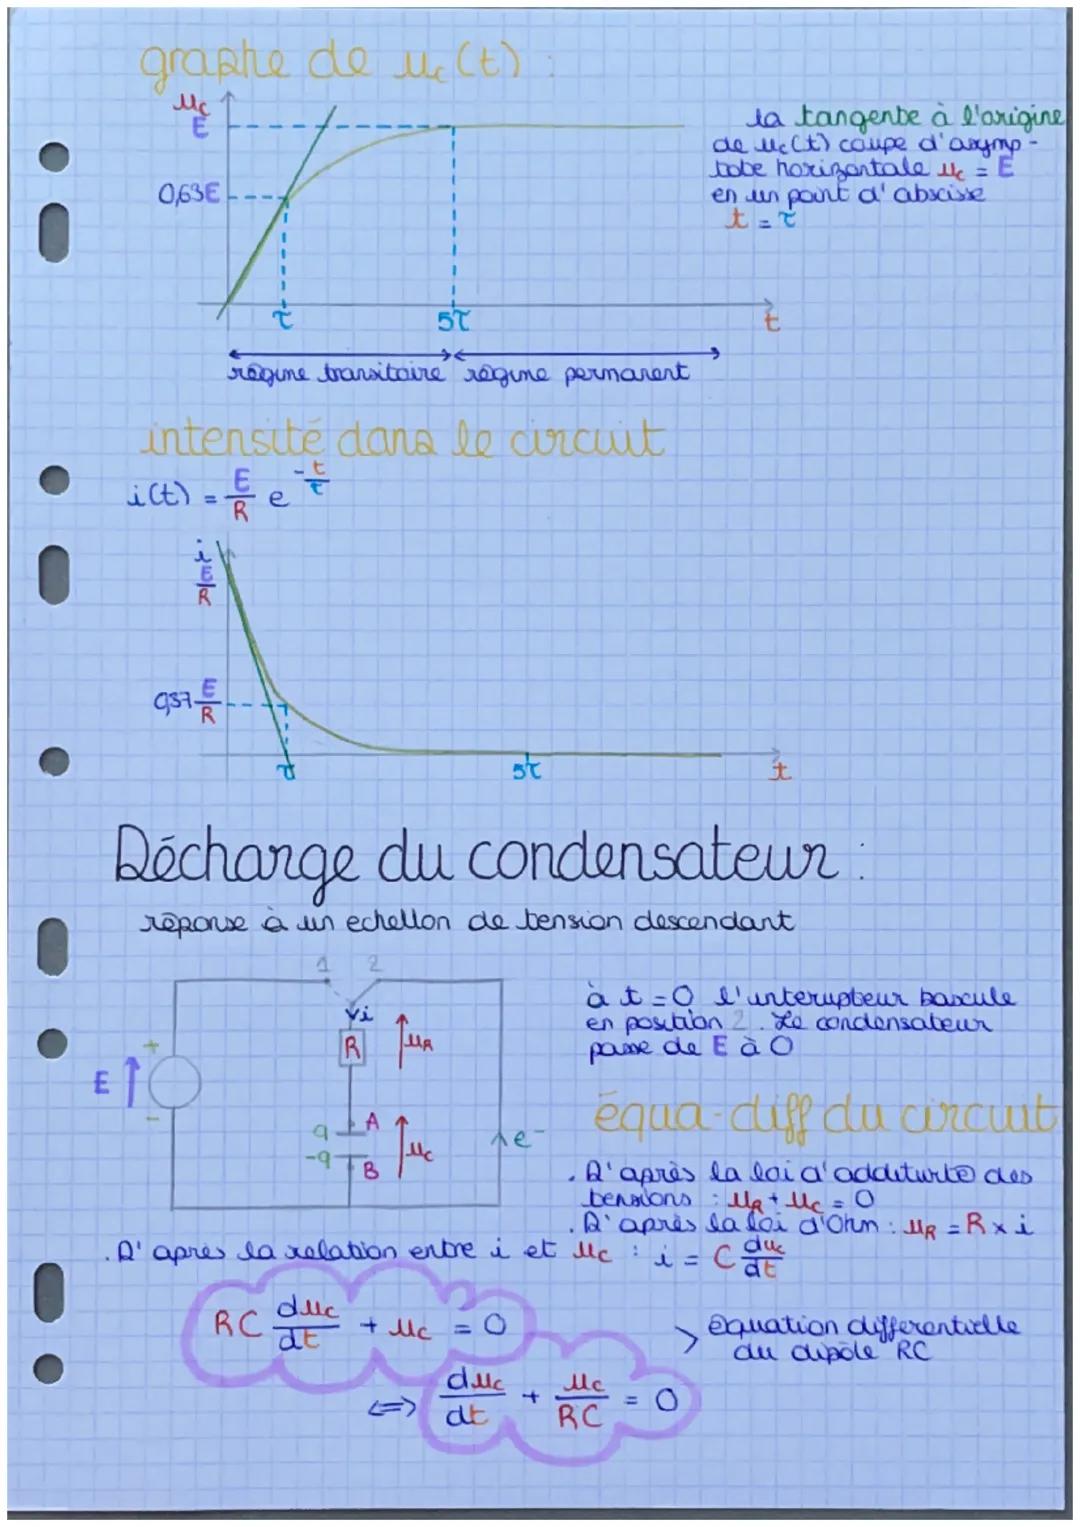 graphe de uc(t) :
uc
E
0,63E
τ
5τ
t
la tangente à l'origine
de uc(t) coupe d'asymp-
tote horizontale uc = E
en un point d'abscisse
t = τ
régime transitoire régime permanent
intensité dans le circuit
i(t) = E/R e^(-t/τ)
i
E/R
0,37 E/R
τ
5τ
t
Décharge du condensateur :
réponse à un echellon de tension descendant
1 2
i
R
uR
+
E
-
q
-q
A
B
uc
e-
à t = 0 l'interupteur bascule
en position 2. Le condensateur
passe de E à 0
équa-diff du circuit
. D'après la loi d'additivité des
tensions : uR + uc = 0
. D'après la loi d'Ohm : uR = R x i
. D'après la relation entre i et uc : i = C duc/dt
RC duc/dt + uc = 0
> équation différentielle
du dipôle RC
<=> duc/dt + uc/RC = 0